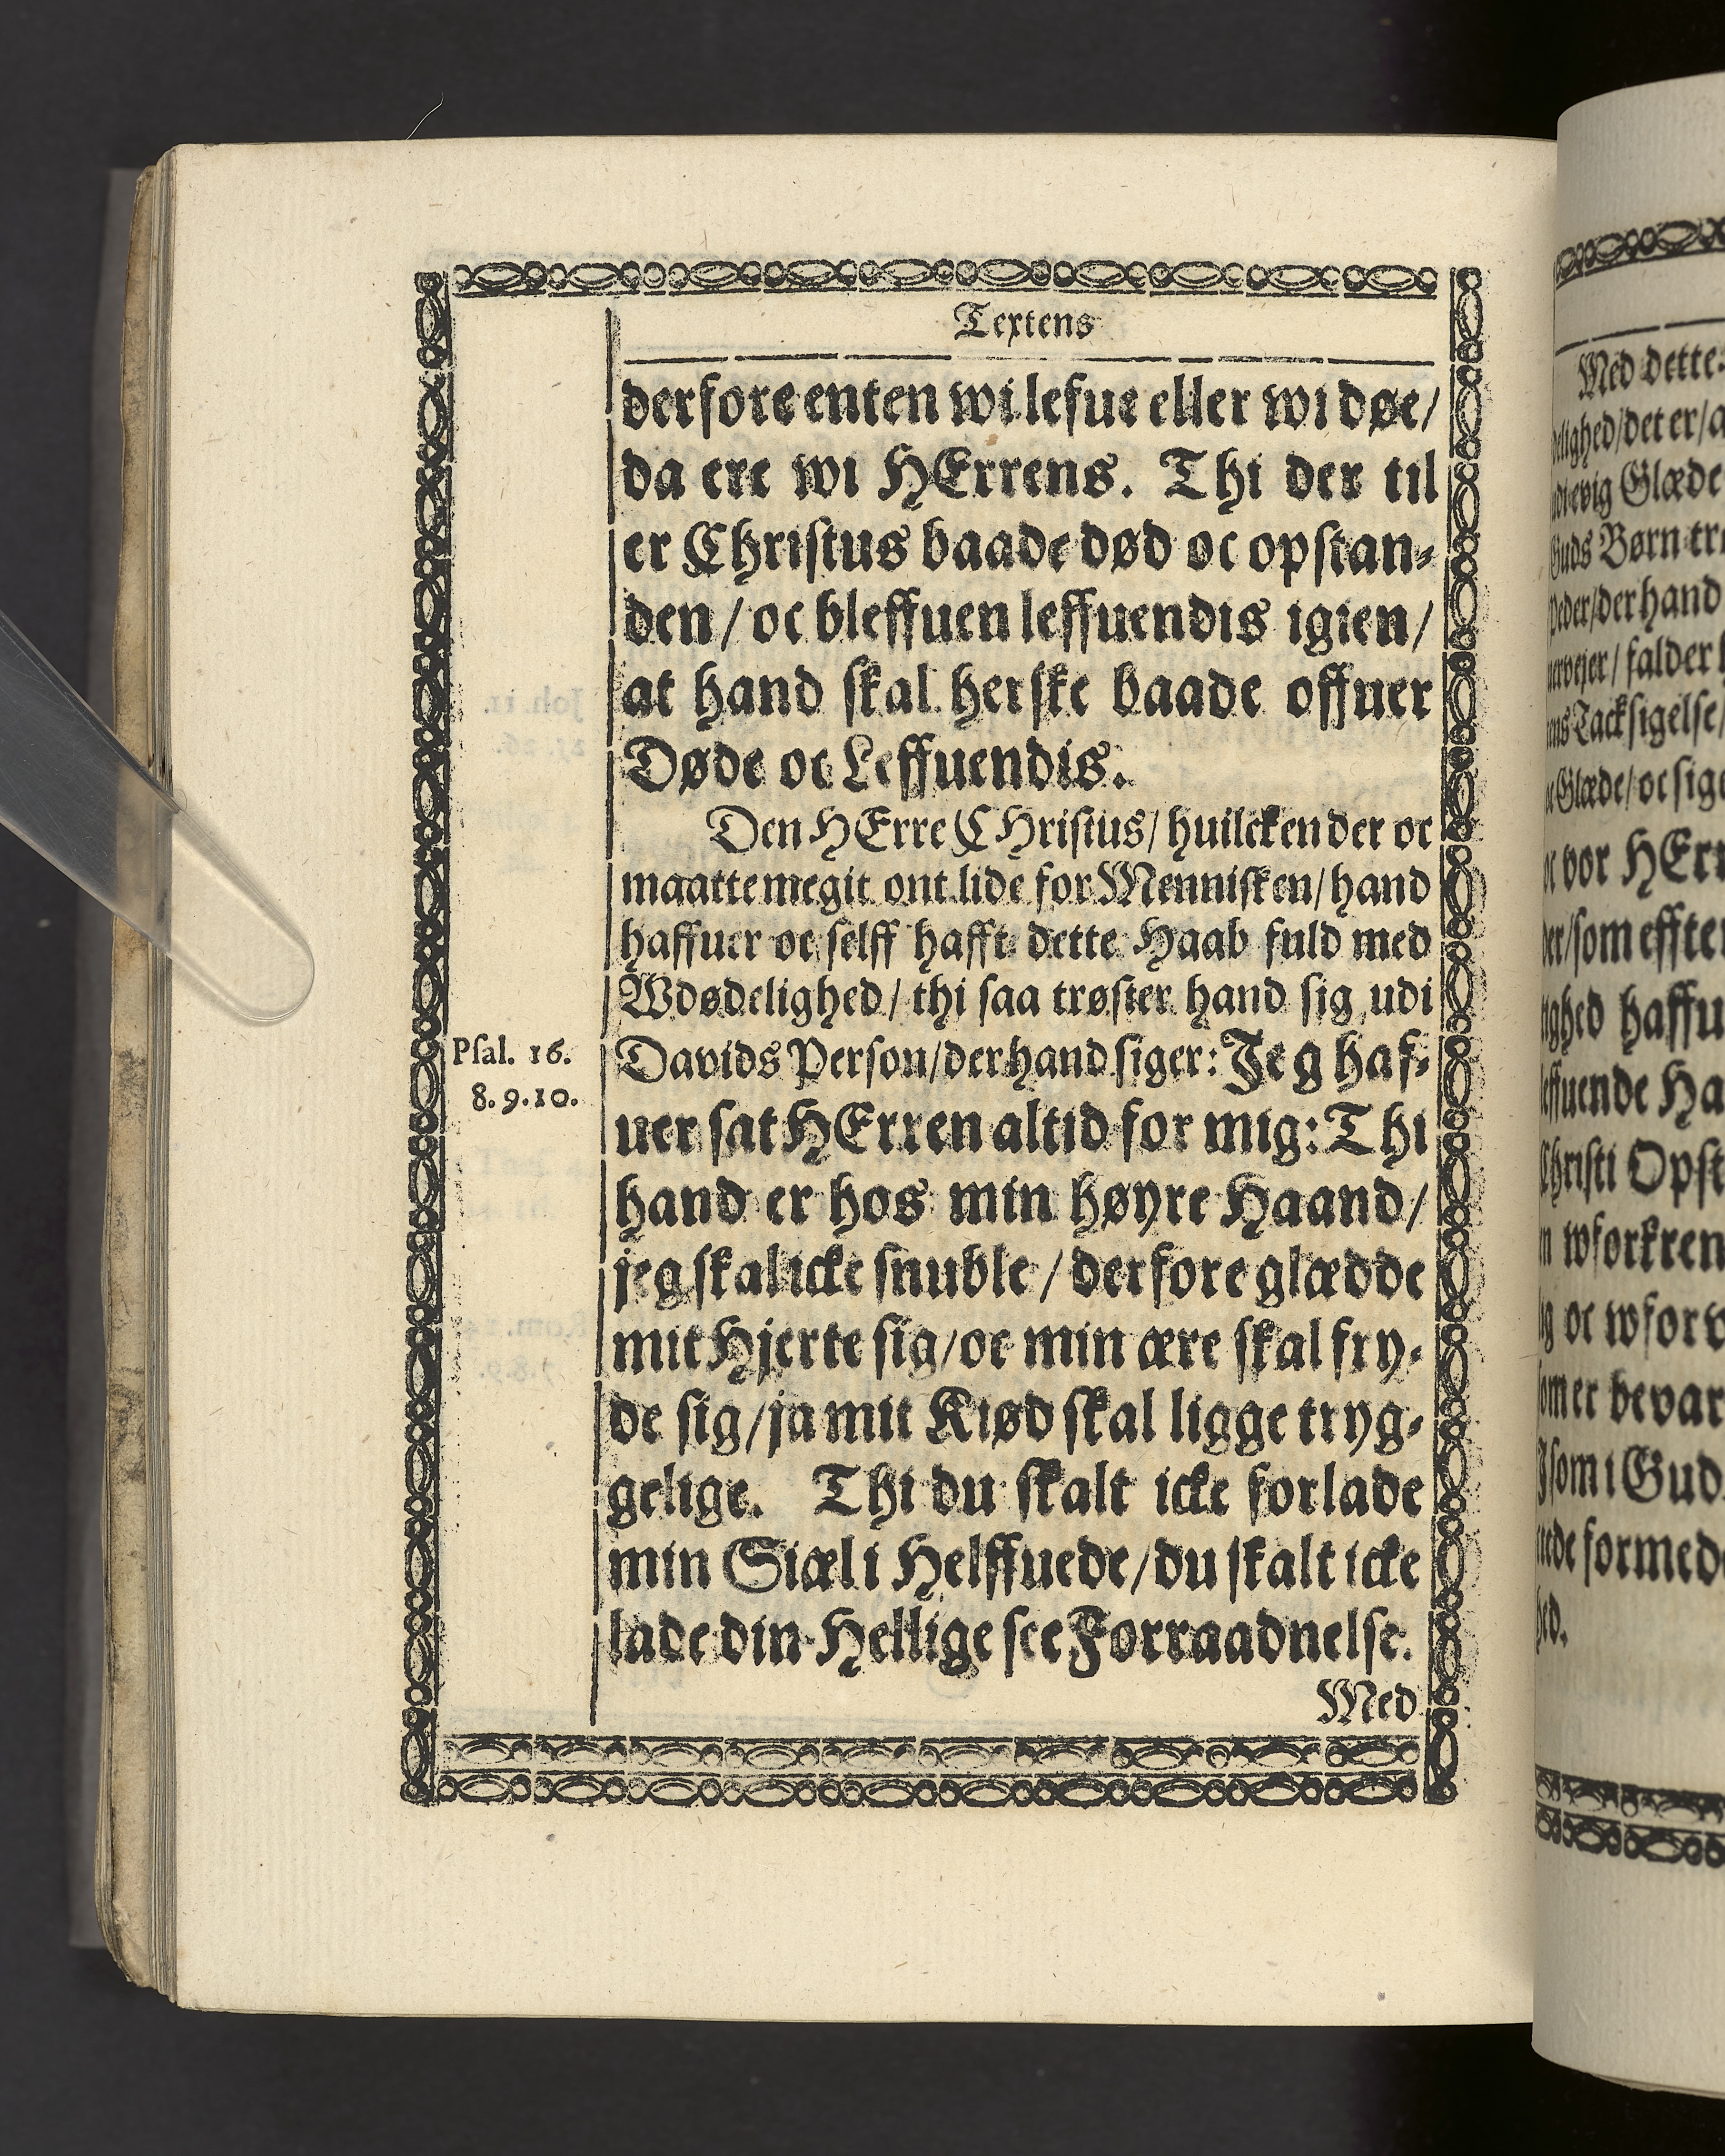 Textens
derfore enten wi lefue eller wi døe/
da ere wi HErrens. Thi der til
er Christus baade død oc opstan-
den/ oc bleffuen leffuendis igien/
at hand skal herske baade offuer
Døde oc Leffuendis.
Den HErre CHristus/ huilcken der oc
maatte megit ont lide for Mennisken/ hand
haffuer oc selff hafft dette Haab fuld med
Wdødelighed/ thi saa trøster hand sig udi
Psal. 16.
8. 9. 10.
Davids Person/ der hand siger: Jeg haf-
uer sat HErren altid for mig: Thi
hand er hos min høyre Haand/
jeg skal icke snuble/ derfore glædde
mit Hjerte sig/ oc min ære skal fry-
de sig/ ja mit Kiød skal ligge tryg-
gelige. Thi du skalt icke forlade
min Siæl i Helffuede/ du skalt icke
lade din Hellige see Forraadnelse.
Med
Med dette
det er/
evig Glæde
Guds Børn
der hand
falder
Tacksigelse/
Glæde/ oc
vor
som
haffu
Christi Opst
oc
er bevar
som i Gud